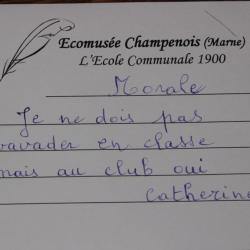 Ecomusée Champenois (Marne)
L'Ecole Communale 1900
Morale
Je ne dois pas
ravader en classe
mais au club oui
Catherine